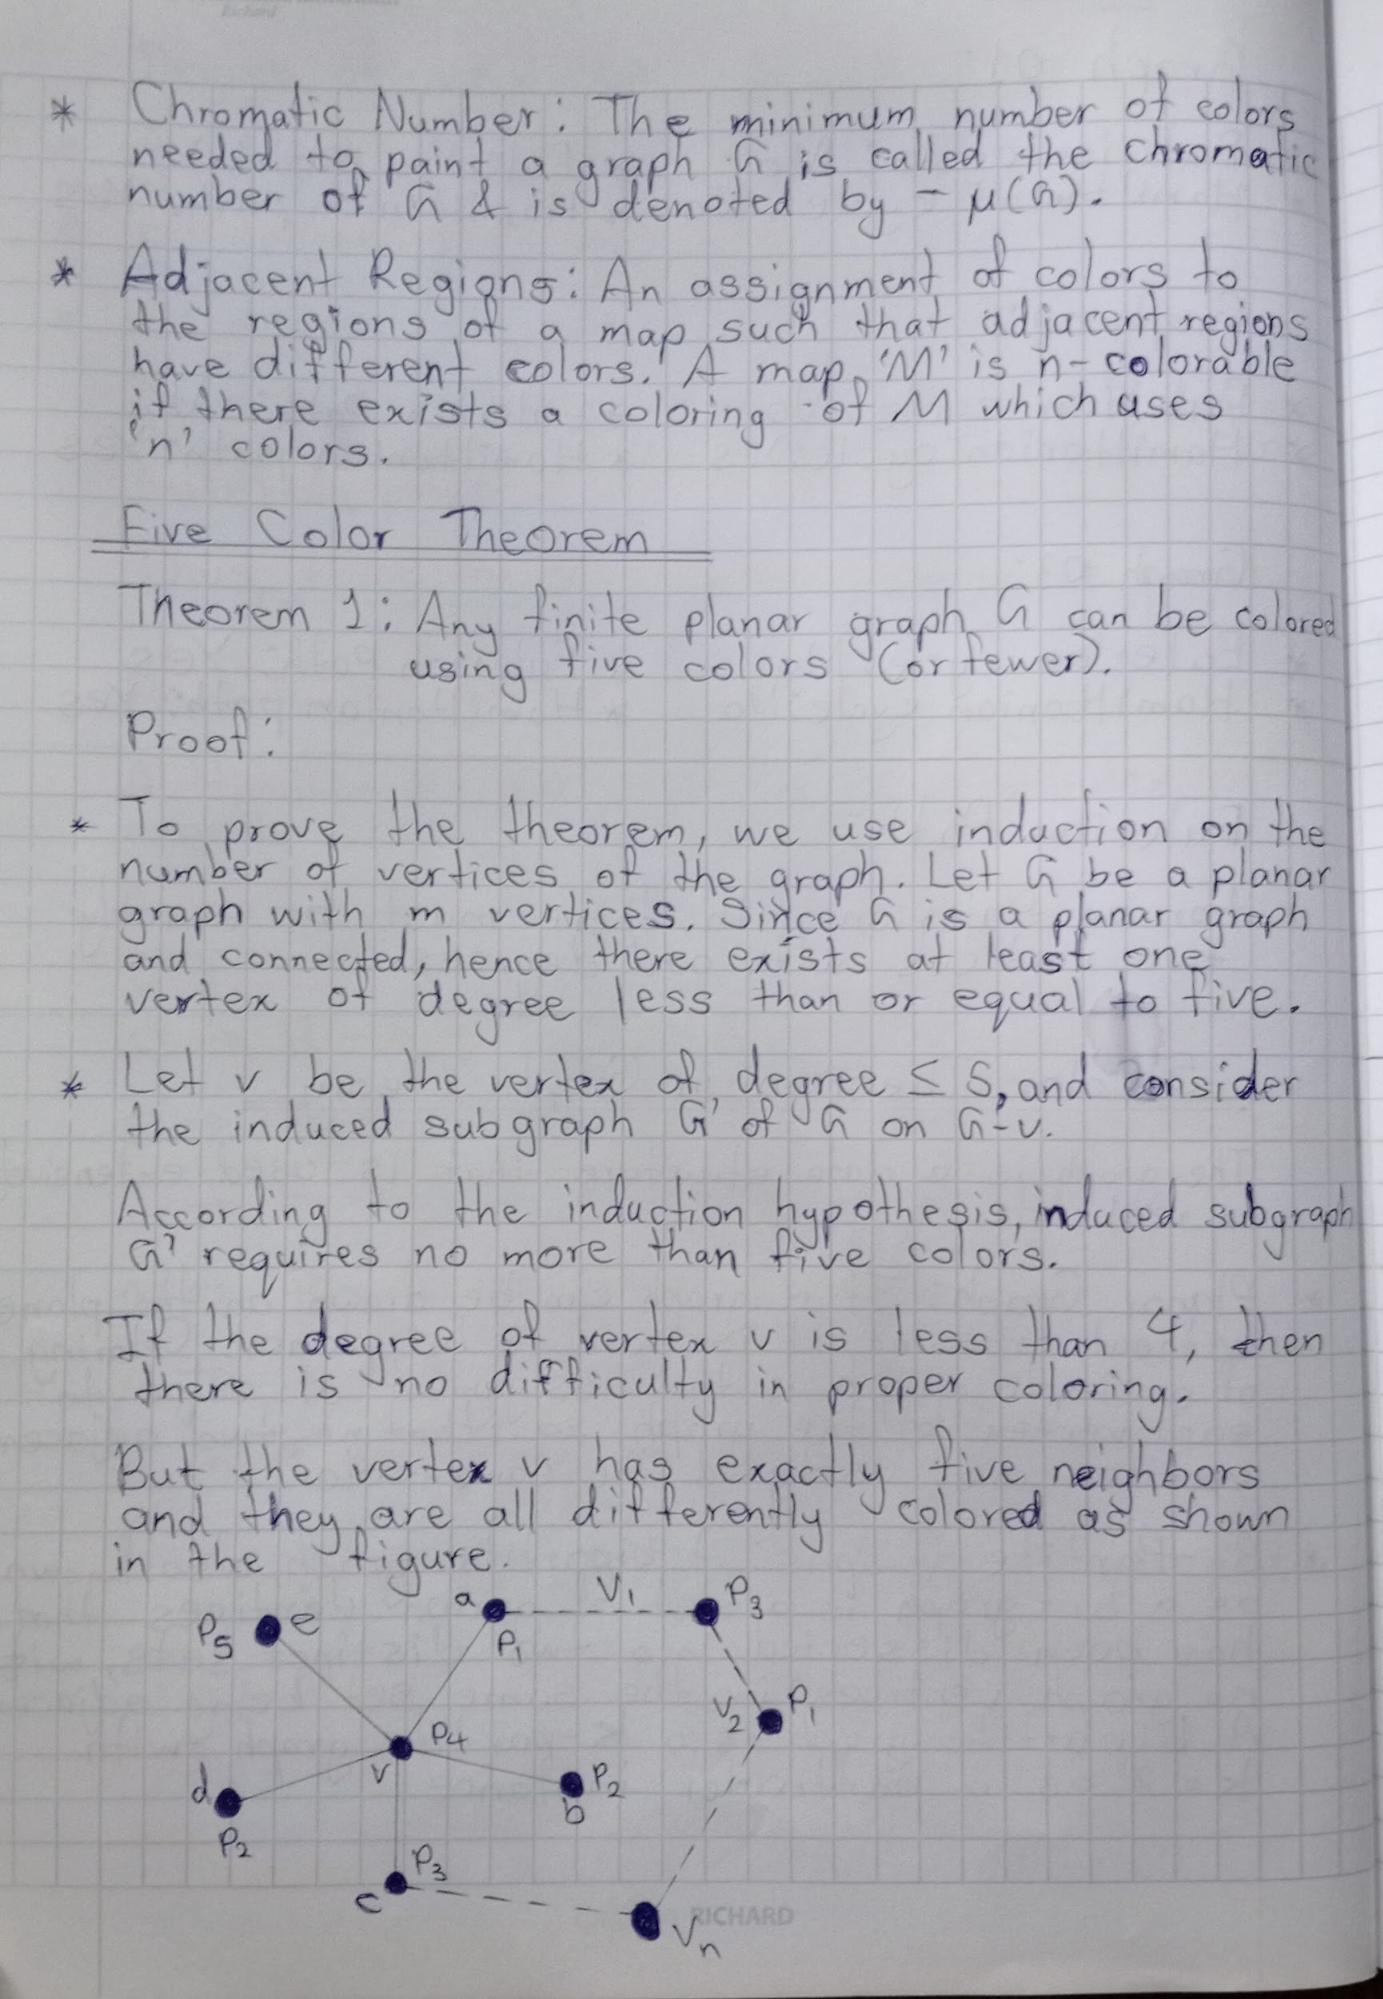 Richard
* Chromatic Number: The minimum number of colors
needed to paint a graph G is called the chromatic
number of G & is denoted by - μ(G).
* Adjacent Regions: An assignment of colors to
the regions of a map such that adjacent regions
have different colors. A map 'M' is n-colorable
if there exists a coloring of M which uses
'n' colors.
Five Color Theorem
Theorem 1: Any finite planar graph G can be colored
using five colors (or fewer).
Proof:
* To prove the theorem, we use induction on the
number of vertices of the graph. Let G be a planar
graph with m vertices. Since G is a planar graph
and connected, hence there exists at least one
vertex of degree less than or equal to five.
* Let v be the vertex of degree ≤ 5, and consider
the induced subgraph G' of G on G-v.
According to the induction hypothesis, induced subgraph
G' requires no more than five colors.
If the degree of vertex v is less than 4, then
there is no difficulty in proper coloring.
But the vertex v has exactly five neighbors
and they are all differently colored as shown
in the figure.
a V₁ P₃
P₅ e
P₁
V₂ P₁
P₄
v
d P₂
b
P₂
P₃
c
RICHARD
Vₙ